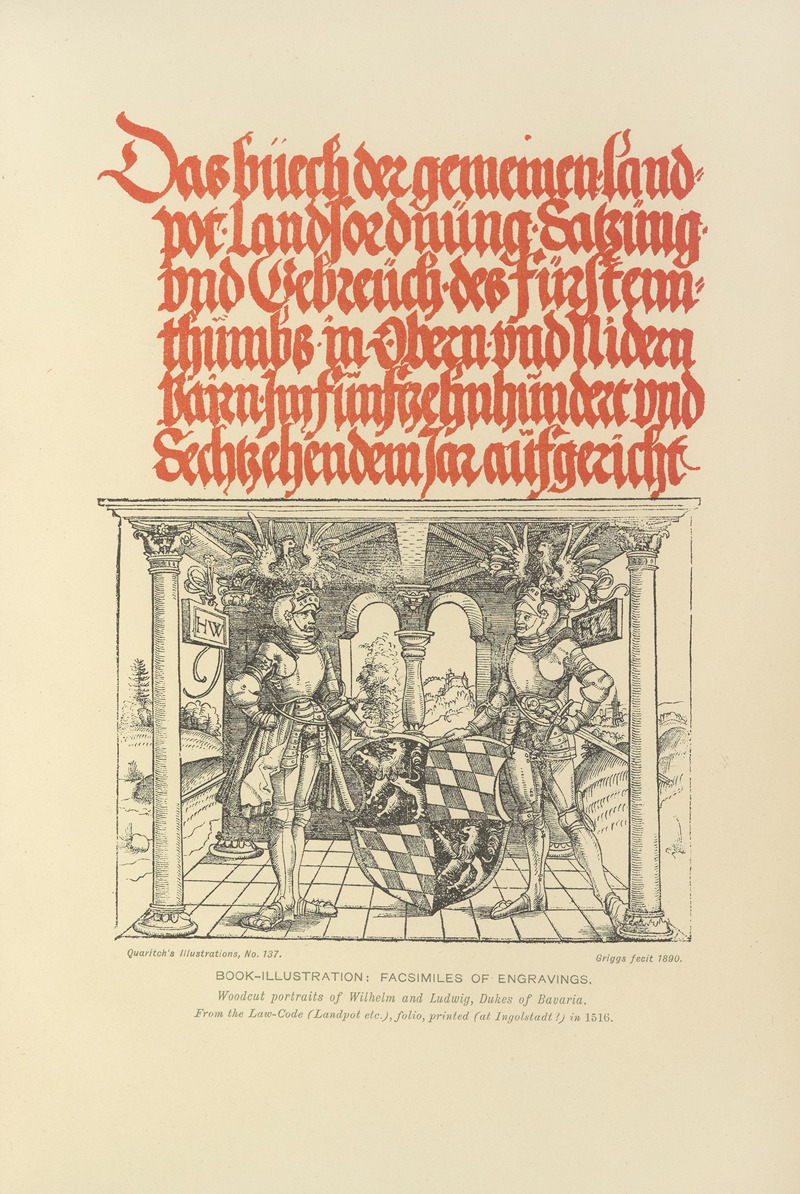 Das büech der gemeinen land-
pot · Landsordnüng · Satzüng ·
vnd Gebreüch · des fürstenn-
thümbs · in · Obern · vnd Nidern
Bairn · Jm fünftzehnhündert vnd
Sechtzehendem Jar aüfgericht
HW
HL
Quaritch's Illustrations, No. 137.
Griggs fecit 1890.
BOOK-ILLUSTRATION: FACSIMILES OF ENGRAVINGS.
Woodcut portraits of Wilhelm and Ludwig, Dukes of Bavaria.
From the Law-Code (Landpot etc.), folio, printed (at Ingolstadt?) in 1516.